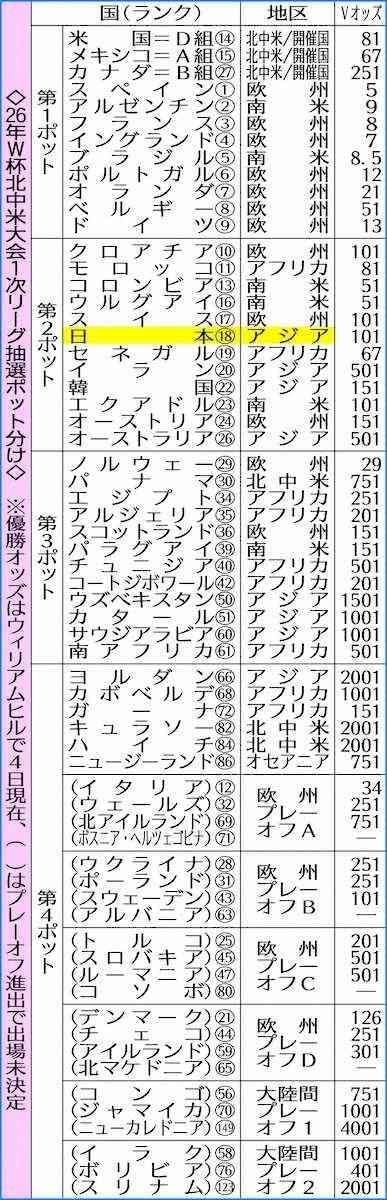 ◇26年W杯北中米大会1次リーグ抽選ポット分け◇ ※優勝オッズはウィリアムヒルで4日現在、( )はプレーオフ進出で出場未決定
国(ランク) 地区 Vオッズ
第1ポット
米国=D組⑭ 北中米/開催国 81
メキシコ=A組⑮ 北中米/開催国 67
カナダ=B組㉗ 北中米/開催国 251
スペイン① 欧州 5
アルゼンチン② 南米 9
フランス③ 欧州 8
イングランド④ 欧州 7
ブラジル⑤ 南米 8.5
ポルトガル⑥ 欧州 12
オランダ⑦ 欧州 21
ベルギー⑧ 欧州 51
ドイツ⑨ 欧州 13
第2ポット
クロアチア⑩ 欧州 101
モロッコ⑪ アフリカ 81
コロンビア⑬ 南米 51
ウルグアイ⑯ 南米 51
スイス⑰ 欧州 101
日本⑱ アジア 101
セネガル⑲ アフリカ 67
イラン⑳ アジア 501
韓国㉒ アジア 151
エクアドル㉓ 南米 101
オーストリア㉔ 欧州 151
オーストラリア㉖ アジア 501
第3ポット
ノルウェー㉙ 欧州 29
パナマ㉚ 北中米 751
エジプト㉞ アフリカ 251
アルジェリア㉟ アフリカ 201
スコットランド㊱ 欧州 151
パラグアイ㊴ 南米 151
チュニジア㊵ アフリカ 501
コートジボワール㊷ アフリカ 201
ウズベキスタン㊿ アジア 1501
カタール(51) アジア 1001
サウジアラビア(60) アジア 1001
南アフリカ(61) アフリカ 501
第4ポット
ヨルダン(66) アジア 2001
カボベルデ(68) アフリカ 1001
ガーナ(72) アフリカ 151
キュラソー(82) 北中米 2001
ハイチ(84) 北中米 2001
ニュージーランド(86) オセアニア 751
(イタリア)⑫ 34
(ウェールズ)㉜ 251
(北アイルランド)(69) 751
(ボスニア・ヘルツェゴビナ)(71) —
欧州プレーオフA
(ウクライナ)㉘ 251
(ポーランド)㉛ 251
(スウェーデン)㊸ 101
(アルバニア)(63) —
欧州プレーオフB
(トルコ)㉕ 201
(スロバキア)㊺ 501
(ルーマニア)㊼ 501
(コソボ)(80) —
欧州プレーオフC
(デンマーク)㉑ 126
(チェコ)㊹ 251
(アイルランド)(59) 301
(北マケドニア)(65) —
欧州プレーオフD
(コンゴ)(56) 751
(ジャマイカ)(70) 1001
(ニューカレドニア)(149) 4001
大陸間プレーオフ1
(イラク)(58) 1001
(ボリビア)(76) 401
(スリナム)(123) 2001
大陸間プレーオフ2